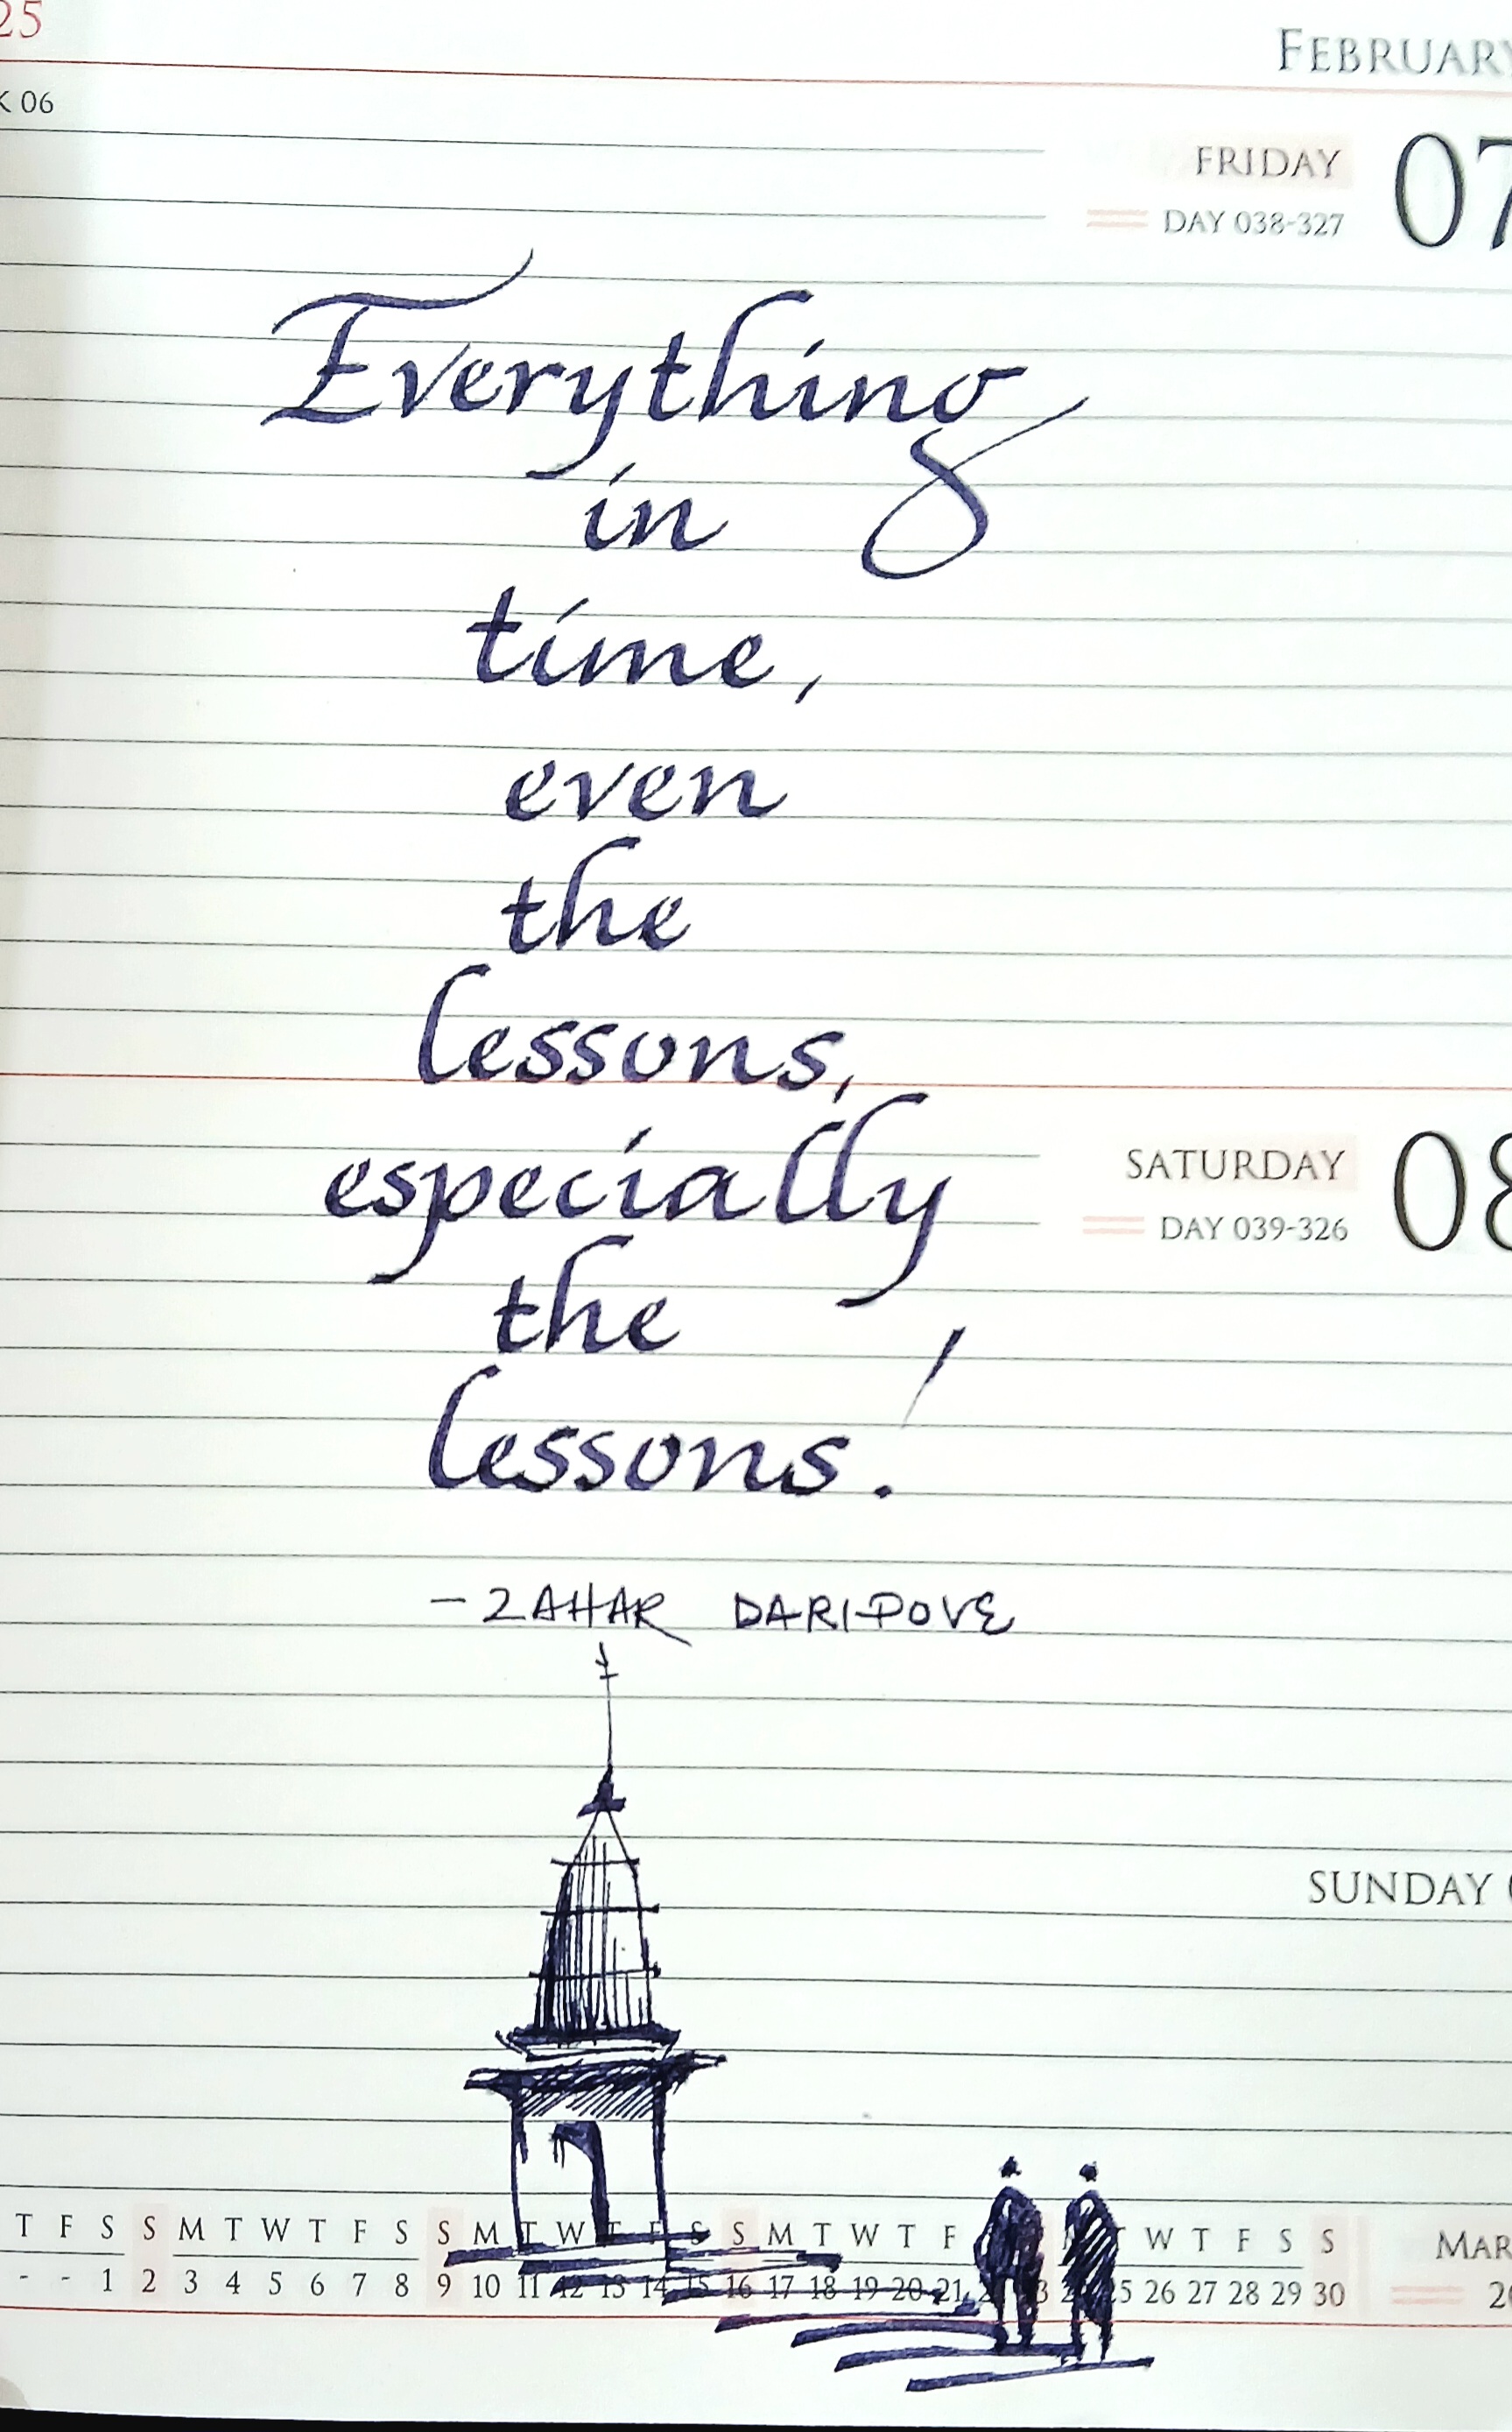 25
FEBRUARY
K 06
FRIDAY 07
DAY 038-327
Everything
in
time,
even
the
lessons,
especially
SATURDAY 08
DAY 039-326
the
lessons!
- ZAHAR DARIPOVE
SUNDAY
T F S S M T W T F S S M T W T F S S M T W T F W T F S S
- - 1 2 3 4 5 6 7 8 9 10 11 12 13 14 15 16 17 18 19 20 21 26 27 28 29 30
MAR